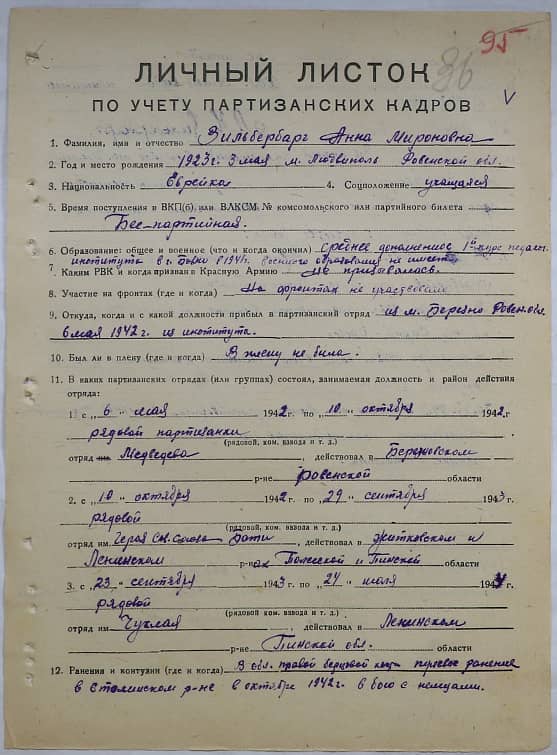 95
36
V
ЛИЧНЫЙ ЛИСТОК
ПО УЧЕТУ ПАРТИЗАНСКИХ КАДРОВ
1. Фамилия, имя и отчество Зильбербарг Анна Мироновна
2. Год и место рождения 1923г. 3 мая м. Людвиполь Ровенской обл.
3. Национальность Еврейка 4. Соцположение учащаяся
5. Время поступления в ВКП(б) или ВЛКСМ. № комсомольского или партийного билета
Бес-партийная.
6. Образование: общее и военное (что и когда окончил) среднее 1й курс педагог.
института в г. в 1941г. военного образования не имеет
7. Каким РВК и когда призван в Красную Армию не призывалась.
8. Участие на фронтах (где и когда) На фронтах не участвовала
9. Откуда, когда и с какой должности прибыл в партизанский отряд из м. Березно Ровен. обл.
6 мая 1942г. из института.
10. Был ли в плену (где и когда) В плену не была.
11. В каких партизанских отрядах (или группах) состоял, занимаемая должность и район действия
отряда:
1. с „6" мая 1942г. по „10" октября 1942г
рядовой партизанки
(рядовой, ком. взвода и т. д.)
отряд им. Медведева, действовал в Березновском
р-не Ровенской области
2. с „10" октября 1942 г. по „29" сентября 1943 г.
рядовой
(рядовой, ком. взвода и т. д.)
отряд им. Героя Св. Союза, действовал в Житковском и
Ленинском р-нах Полесской и Пинской области
3. с „23" сентября 1943 г. по „24" июля 1944 г.
рядовой
(рядовой, ком. взвода и т. д.)
отряд им. Чуклая, действовал в Ленинском
р-не Пинской обл. области
12. Ранения и контузии (где и когда) В обл. правой берцовой пулевое ранение
в Столинском р-не в октябре 1942г. в бою с немцами.